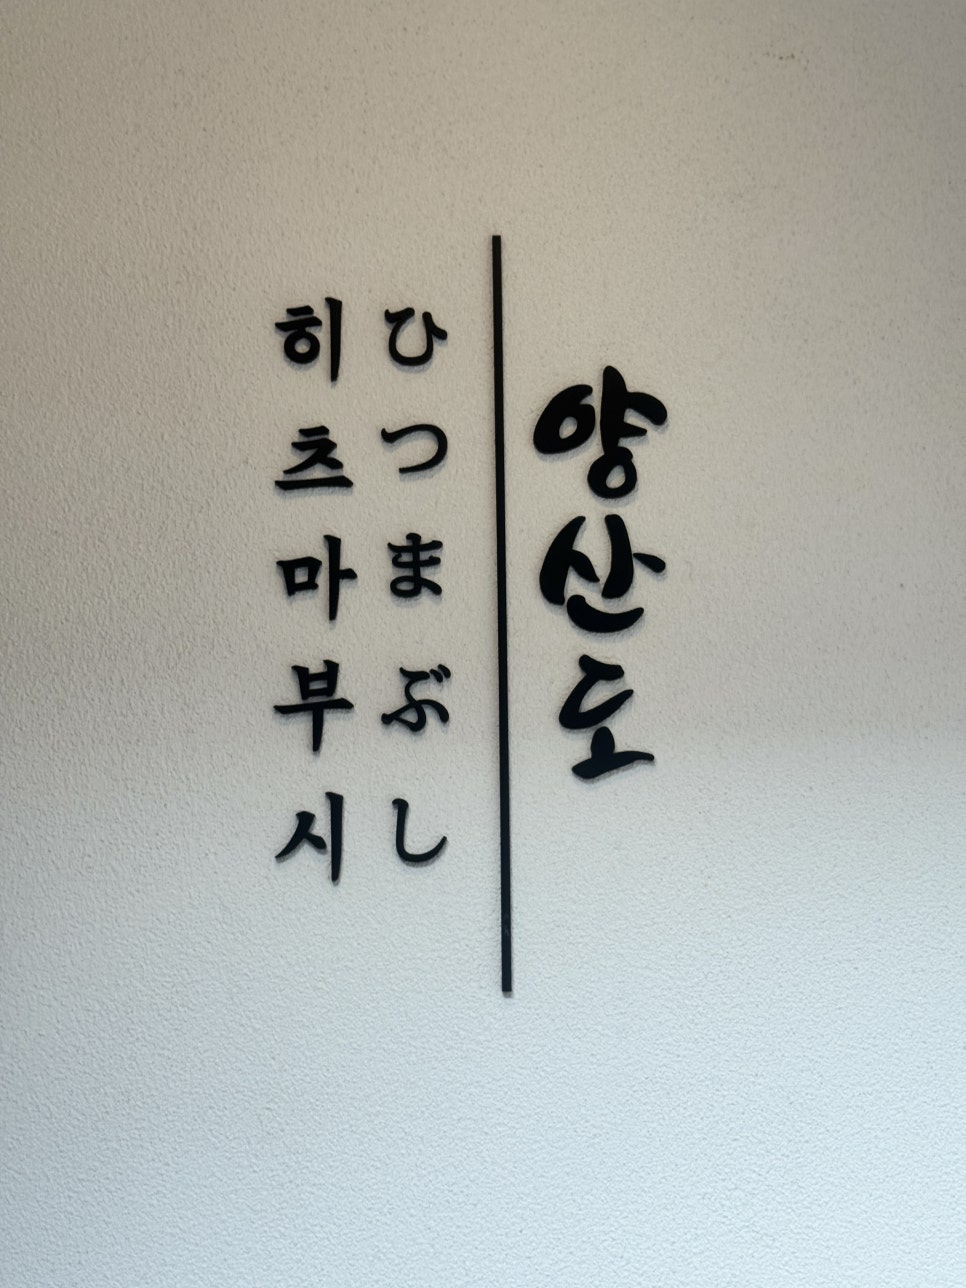 양산도
ひつまぶし
히츠마부시